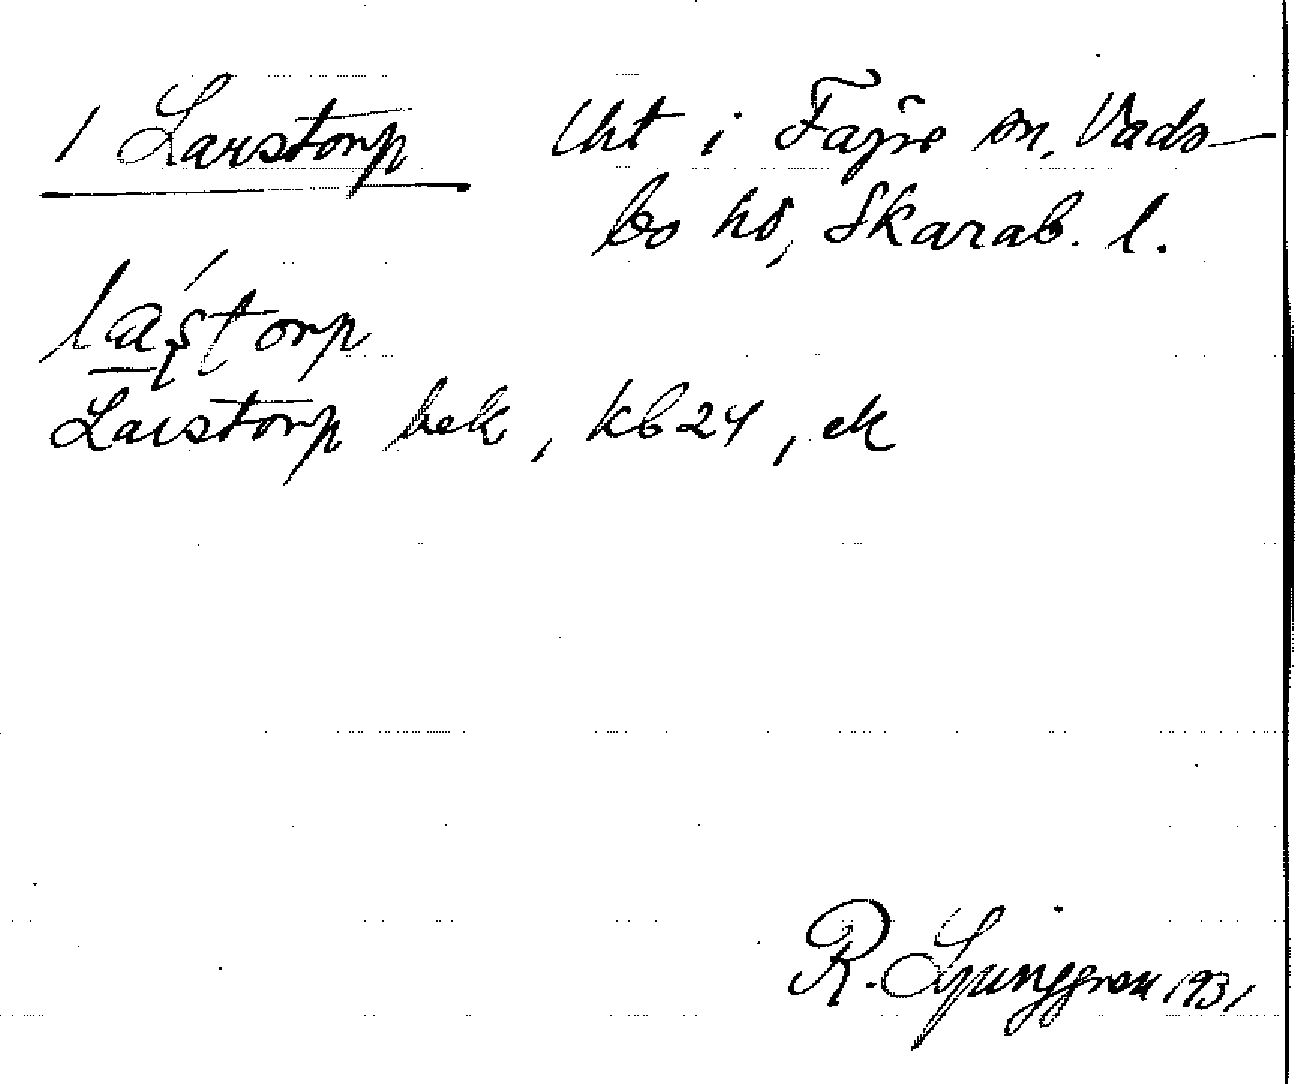 1 Larstorp Uht i Fägre sn, Vads-
bo hd, Skarab. l.
la̲ştorp
Larstorp bek, kb 24, ek
R. Ljunggren 1931